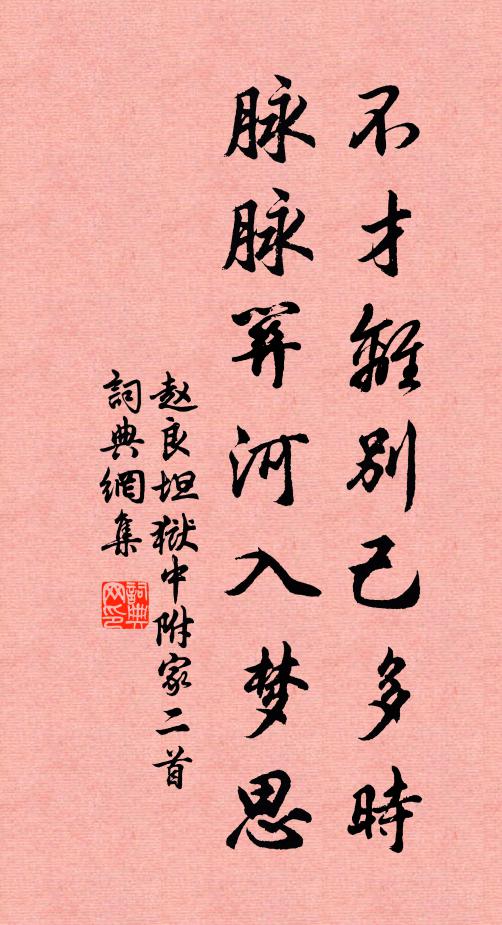 不才離別已多時
脉脉關河入梦思
赵良坦獄中附家二首
詞典網集
詞典
网印